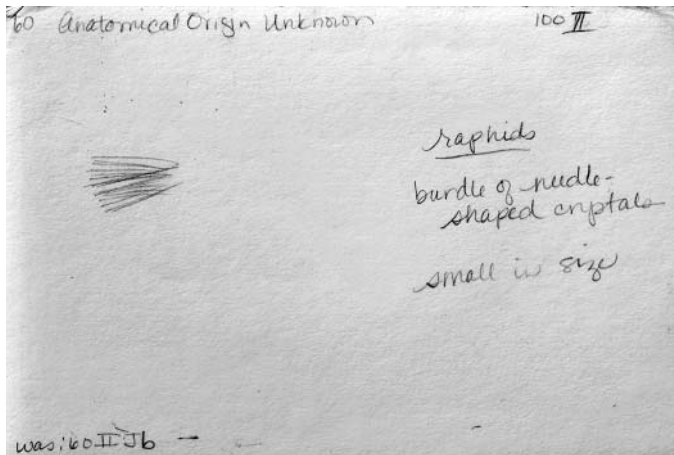 60 Anatomical Origin Unknown 100 II
raphids
bundle of needle-
shaped crystals
small in size
was: 60 II Jb —